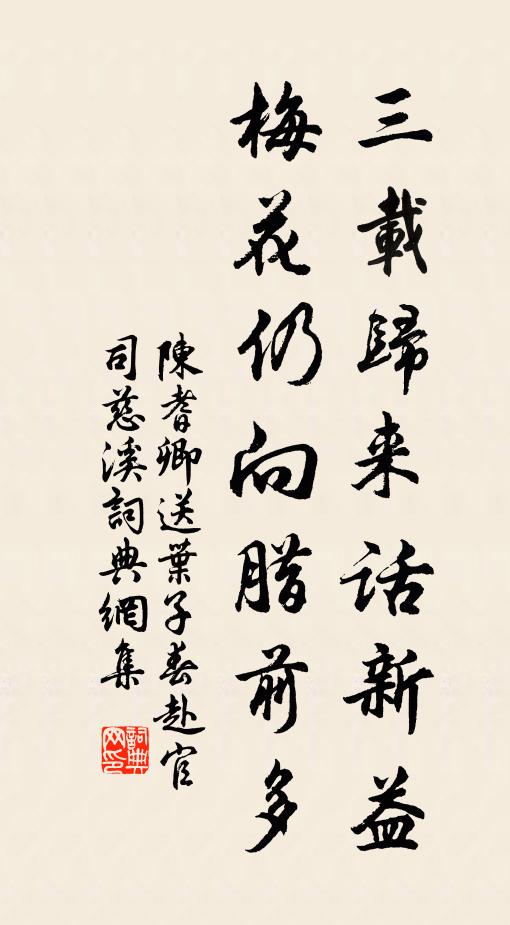 三載歸来話新益
梅花仍向腊前多
陳耆卿送葉子春赴官
司慈溪詞典網集
詞典网印